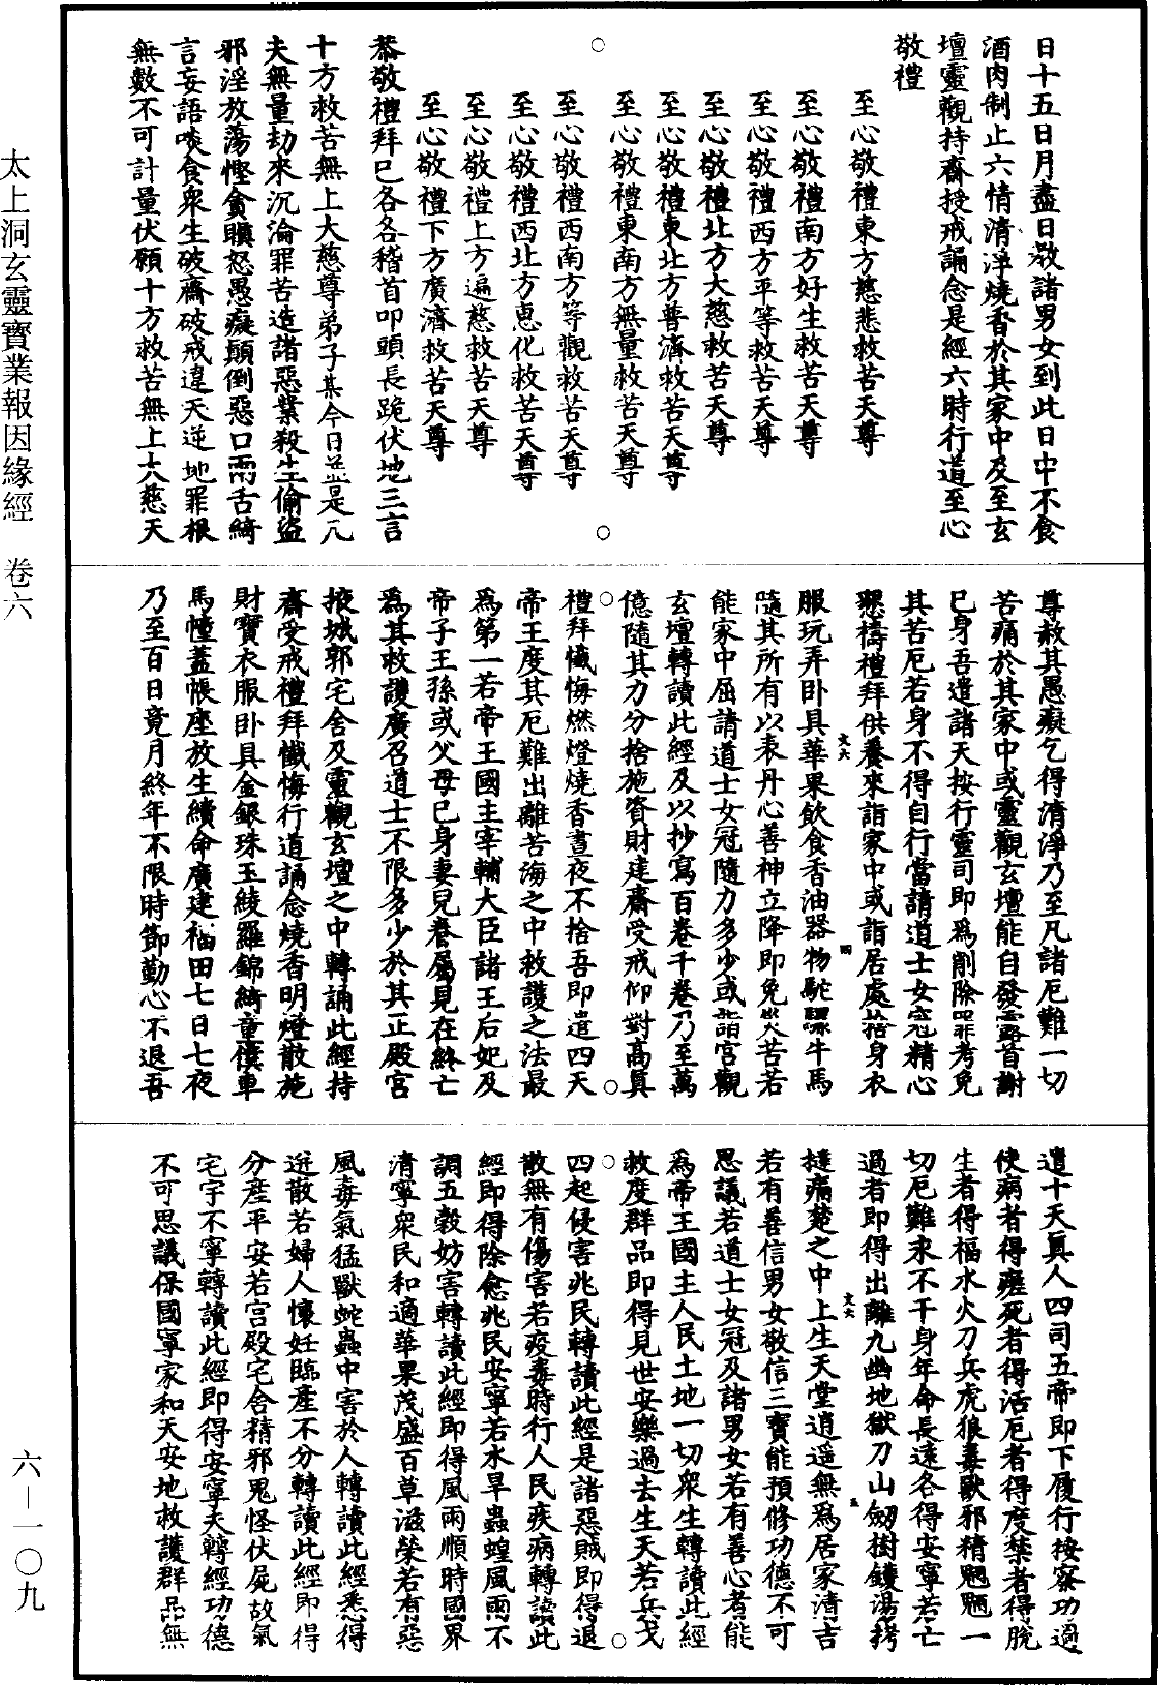 日十五日月盡日敎諸男女到此日中不食
酒肉制止六情清淨燒香於其家中及至玄
壇靈觀持齋授戒誦念是經六時行道至心
敬禮
至心敬禮東方慈悲救苦天尊
至心敬禮南方好生救苦天尊
至心敬禮西方平等救苦天尊
至心敬禮北方大慈救苦天尊
至心敬禮東北方普濟救苦天尊
至心敬禮東南方無量救苦天尊
至心敬禮西南方等觀救苦天尊
至心敬禮西北方惠化救苦天尊
至心敬禮上方遍慈救苦天尊
至心敬禮下方廣濟救苦天尊
恭敬禮拜已各各稽首叩頭長跪伏地三言
十方救苦無上大慈尊弟子某今日並是凡
夫無量劫來沉淪罪苦造諸惡業殺生偷盜
邪淫放蕩慳貪瞋怒愚癡顛倒惡口兩舌綺
言妄語啖食衆生破齋破戒違天逆地罪根
無數不可計量伏願十方救苦無上大慈天
尊赦其愚癡乞得清淨乃至凡諸厄難一切
苦痛於其家中或靈觀玄壇能自發露首謝
已身吾遣諸天按行靈司即爲削除罪考免
其苦厄若身不得自行當請道士女冠精心
懇禱禮拜供養來詣家中或詣居處捨身衣
服玩弄卧具華果飲食香油器物駝騾牛馬
隨其所有以表丹心善神立降即免災苦若
能家中屈請道士女冠隨力多少或詣宫觀
玄壇轉讀此經及以抄寫百卷千卷乃至萬
億隨其力分捨施資財建齋受戒仰對高真
禮拜懺悔燃燈燒香晝夜不捨吾即遣四天
帝王度其厄難出離苦海之中救護之法最
爲第一若帝王國主宰輔大臣諸王后妃及
帝子王孫或父母已身妻兒眷屬見在終亡
爲其救護廣召道士不限多少於其正殿宮
掖城郭宅舍及靈觀玄壇之中轉誦此經持
齋受戒禮拜懺悔行道誦念燒香明燈散施
財寶衣服卧具金銀珠玉綾羅錦綺童僕車
馬幢蓋帳座放生續命廣建福田七日七夜
乃至百日竟月終年不限時節勤心不退吾
遣十天真人四司五帝即下履行按察功過
使病者得瘥死者得活厄者得度禁者得脫
生者得福水火刀兵虎狼毒獸邪精魍魎一
切厄難永不干身年命長遠各得安寧若亡
過者即得出離九幽地獄刀山劒樹鑊湯拷
撻痛楚之中上生天堂逍遥無爲居家清吉
若有善信男女敬信三寶能預修功德不可
思議若道士女冠及諸男女若有善心者能
爲帝王國主人民土地一切衆生轉讀此經
救度群品即得見世安樂過去生天若兵戈
四起侵害兆民轉讀此經是諸惡賊即得退
散無有傷害若疫毒時行人民疾病轉讀此
經即得除愈兆民安寧若水旱蟲蝗風雨不
調五穀妨害轉讀此經即得風雨順時國界
清寧衆民和適華果茂盛百草滋榮若有惡
風毒氣猛獸蛇蟲中害於人轉讀此經悉得
逬散若婦人懷妊臨產不分轉讀此經即得
分産平安若宫殿宅舍精邪鬼怪伏屍故氣
宅宇不寧轉讀此經即得安寧夫轉經功德
不可思議保國寧家和天安地救護群品無
太上洞玄靈寶業報因緣經 卷六
六－一〇九